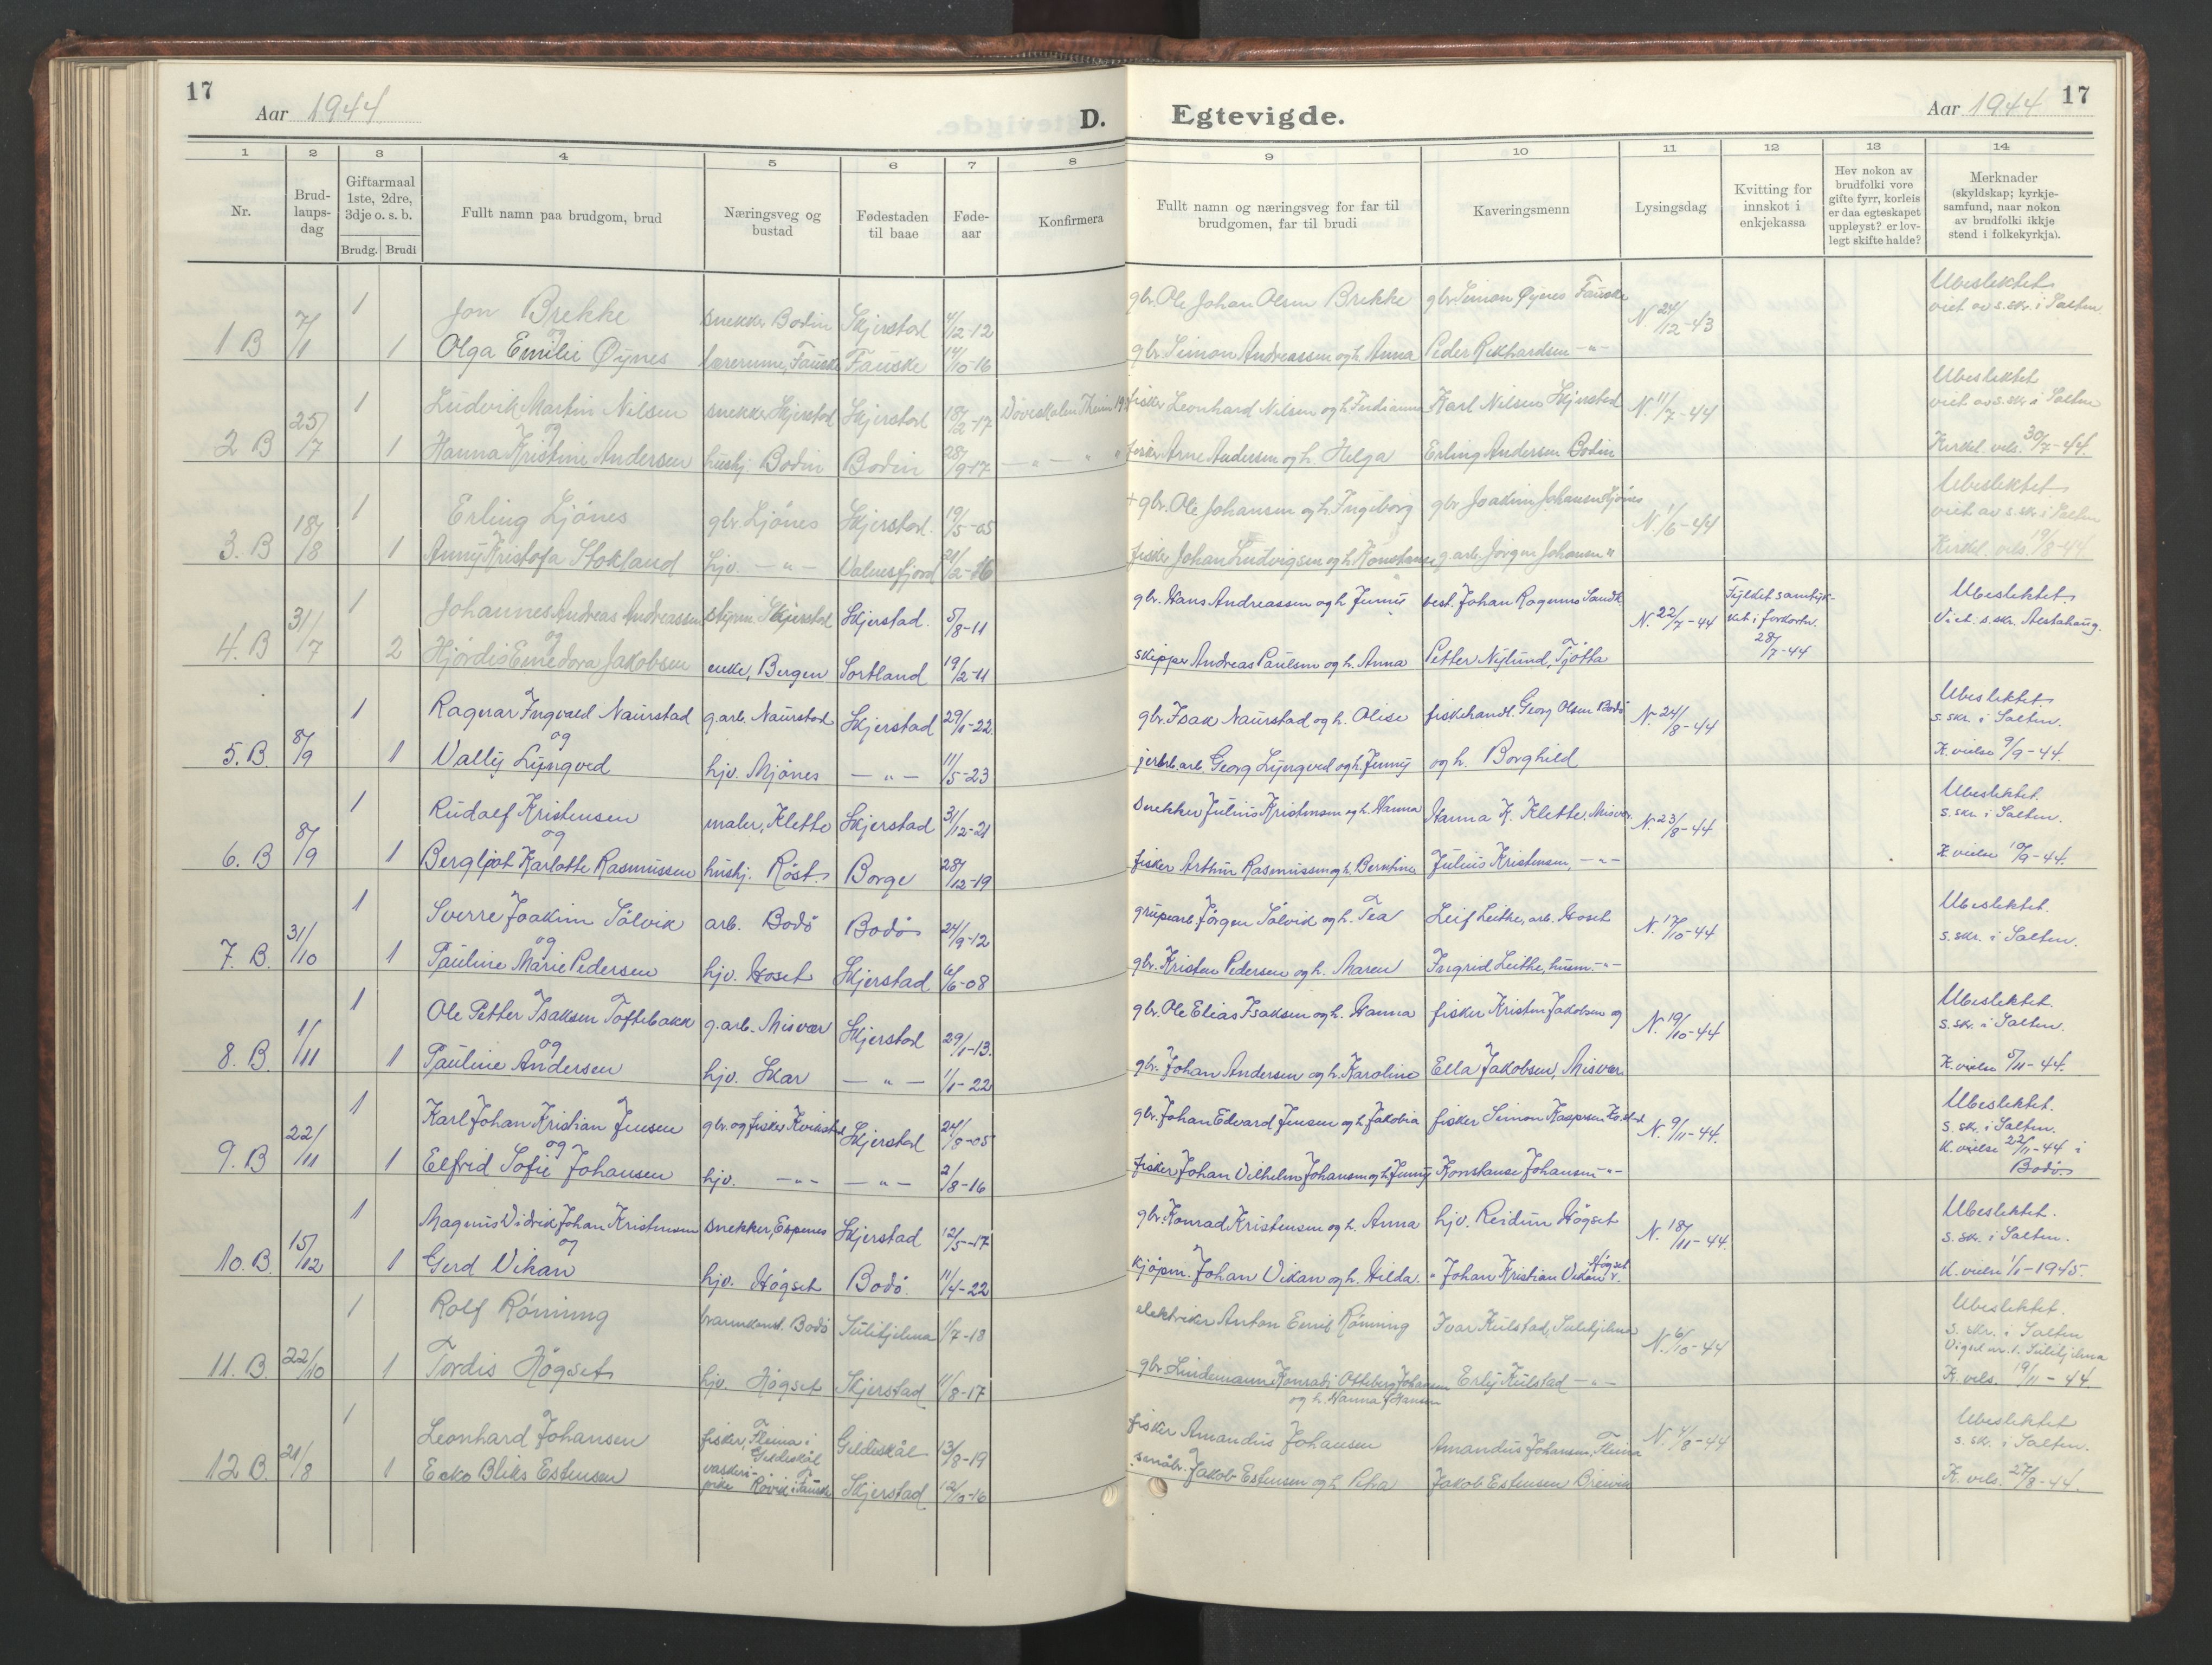 17
Aar 1944
D.
Egtevigde.
Aar 1944
17
1 2 3 4 5 6 7 8 9 10 11 12 13 14
Nr.
Brud-
laups-
dag
Giftarmaal
1ste, 2dre,
3dje o. s. b.
Brudg. Brudi
Fullt namn paa brudgom, brud
Næringsveg og
bustad
Fødestaden
til baae
Føde-
aar
Konfirmera
Fullt namn og næringsveg for far til
brudgomen, far til brudi
Kaveringsmenn
Lysingsdag
Kvitting for
innskot i
enkjekassa
Hev nokon av
brudfolki vore
gifte fyrr, korleis
er daa egteskapet
uppløyst? er lov-
legt skifte halde?
Merknader
(skyldskap; kyrkje-
samfund, naar nokon
av brudfolki ikkje
stend i folkekyrkja).
1 Jon Brekke snekker Bodin Skjerstad 4/12-12 gbr. Ole Johan Olsen Brekke gbr. Simon Øynes Fauske N 24/12-43 Ubeslektet
viet av s.skr. i Salten.
og
1 B 7/1 1 Olga Emilie Øynes lærerinne, Fauske Fauske 14/10-16 gbr. Simon Andreassen og h. Anna Peder Rikhardsen -"-
1 Ludvik Martin Nilsen snekker Skjerstad Skjerstad 18/2-17 Døveskolen Th.eim fisker Leonhard Nilsen og h. Indianna Karl Nilsen Skjerstad N. 11/7-44 Ubeslektet
viet av s.skr. i Salten
og
2 B 25/7 1 Hanna Kristine Andersen hushj. Bodin Bodin 28/9-17 -"- " fisker Arne Andersen og h. Helga Erling Andersen Bodin Kirkel. vels. 30/7-44.
1 Erling Ljønes gbr. Ljönes Skjerstad. 19/5-05 + gbr. Ole Johansen og h. Ingeborg gbr. Joakim Johansen Ljönes N. 1/6-44 Ubeslektet
viet av s.skr. i Salten
3. B 18/8 1 Anny Kristofa Stokland hjv. -"- Valnesfjord 21/2-16 fisker Johan Ludvigsen og h. Konstanse g.arb. Jörgen Johansen " Kirkel. vels. 19/8-44
1 Johannes Andreas Andreassen styrm. Skjerstad Skjerstad. 5/8-11 gbr. Hans Andreassen og h. Jenny best. Johan Ragnvas N. 22/7-44 Fylket samtyk-
ket i forkortn.
28/7-44 Ubeslektet.
Viet: s.skr. Alstahaug.
og
4. B 31/7 2 Hjördis Jakobsen enke, Bergen Sortland 19/2-11 skipper Andreas Paulsen og h. Anna Petter Nylund, Tjötta
1 Ragnar Ingvald Naurstad g.arb. Naurstad Skjerstad 29/1-22. gbr. Isak Naurstad og h. Olise fiskehandl. Georg Olsen Bodö N. 24/8-44 Ubeslektet.
s.skr. i Salten.
og
5. B. 8/9 1 Vally Lyngved hjv. Mjönes -"- 11/5-23 jernb.arb. Georg Lyngved og h. Jenny og h. Borghild K. vielse 9/9-44.
1 Rudolf Kristensen maler, Klette Skjerstad 31/12-21 Snekker Julius Kristensen og h. Hanna Hanna K. Klette, Misvær N. 23/8-44 Ubeslektet.
s.skr. i Salten.
og
6. B 8/9 1 Bergljot Karlotte Rasmussen hushj. Röst. Borge 28/12-19 fisker Arthur Rasmussen og h. Berntine Julius Kristensen, -"- K. vielse 10/9-44.
1 Sverre Joakim Sölvik arb. Bodö Bodö 24/9-12 grubearb. Jörgen Sölvik og h. Tea Leif Leithe, arb. Hoset N. 17/10-44 Ubeslektet.
s.skr. i Salten.
og
7. B. 31/10 1 Pauline Marie Pedersen hjv. Hoset Skjerstad 6/6-08 gbr. Kristen Pedersen og h. Maren Ingrid Leithe, husm. -"-
1 Ole Petter Isaksen Toftebakk g.arb. Misvær Skjerstad 29/1-13. gbr. Ole Elias Isaksen og h. Hanna fisker Kristen Jakobsen og N. 19/10-44 Ubeslektet.
s.skr. i Salten.
og
8. B. 1/11 1 Pauline Andersen hjv. Skar -"- 1/1-22 gbr. Johan Andersen og h. Karoline Ella Jakobsen, Misvær K. vielse 5/11-44.
1 Karl Johan Kristian Jensen gbr. og fisker Kvikstad Skjerstad 24/8-05 gbr. Johan Edvard Jensen og h. Jakobia fisker Simon Kaspersen N. 9/11-44. Ubeslektet.
s.skr. i Salten.
og
9. B 22/11 1 Elfrid Sofie Johansen hjv. -"- -"- 2/8-16 fisker Johan Vilhelm Johansen og h. Jenny Konstanse Johansen -"- K. vielse 22/11-44 i
Bodö.
1 Magnus Vidrik Johan Kristensen snekker, Espenes Skjerstad 12/5-17 gbr. Konrad Kristensen og h. Anna hjv. Reidun Högset N. 18/11-44. Ubeslektet.
s.skr. i Salten.
og
10. B. 15/12 1 Gerd Vikan hjv. Högset Bodö. 11/4-22 kjöpm. Johan Vikan og h. Hilda. " Johan Kristian Vikan Högset K. vielse 1/1-1945.
1 Rolf Rönning Bodö Sulitjelma 1/7-18 elektriker Anton Emil Rönning Ivar Kulstad, Sulitjelma N. 6/10-44 Ubeslektet.
s.skr. i Salten
Vigsel nr. 1. Sulitjelma
11. B. 22/10 1 Tordis Högset hjv. Högset Skjerstad 11/8-17 gbr. Lindemann Konradi Otteberg Johansen
og h. Hanna f. Hansen Erly Kulstad -"- K. vels. 19/11-44.
1 Leonhard Johansen fisker, Fleina i
Gildeskål Gildeskål 13/8-19 fisker Amandus Johansen Amandus Johansen, Fleina N. 4/8-44 Ubeslektet
s.sk. i Salten.
12 B. 21/8 1 Ecko Bliks Estensen vaskeri-
pike Røvik i Fauske Skjerstad 12/10-16 småbr. Jakob Estensen og h. Petra Jakob Estensen Breivik K. vels. 27/8-44.